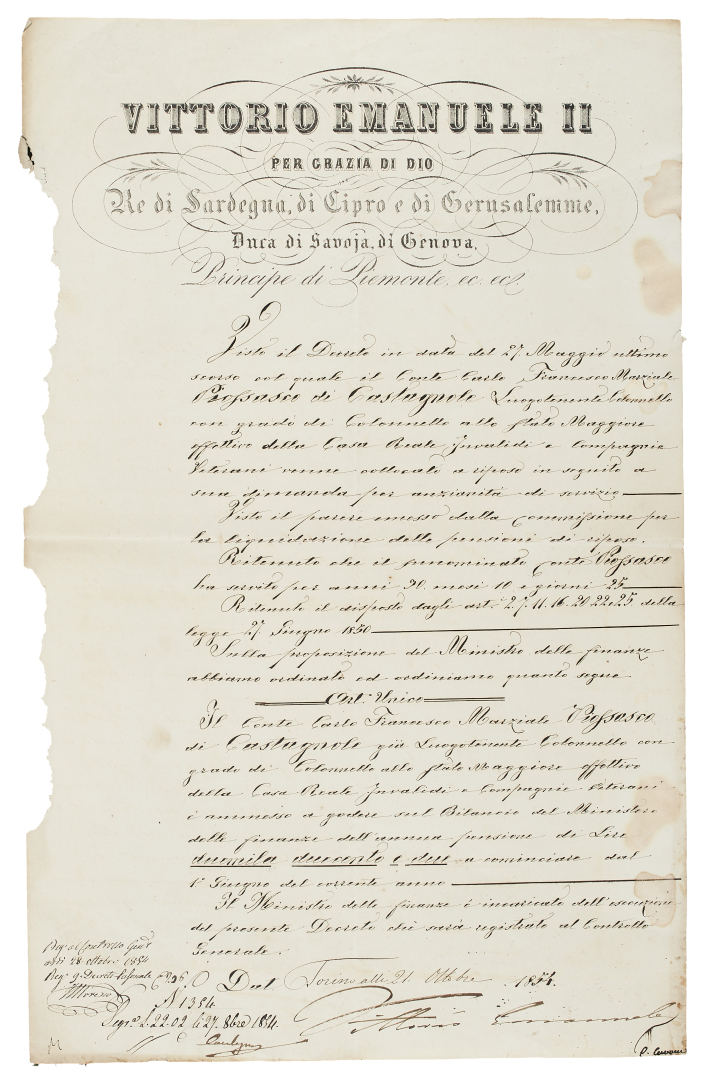 VITTORIO EMANUELE II
PER GRAZIA DI DIO
Re di Sardegna, di Cipro e di Gerusalemme,
Duca di Savoja, di Genova,
Principe di Piemonte, ec. ec.
Visto il Decreto in data del 27. Maggio ultimo
scorso col quale il Conte Carlo Francesco Marziale
Piossasco di Castagnole Luogotenente Colonnello
con grado di Colonnello allo Stato Maggiore
effettivo della Casa Reale Invalidi e Compagnie
Veterani venne collocato a riposo in seguito a
sua dimanda per anzianità di servizio
Visto il parere emesso dalla commissione per
la liquidazione delle pensioni di riposo.
Ritenuto che il sunnominato Conte Piossasco
ha servito per anni 30. mesi 10 e giorni 25
Ritenuto il disposto dagli art. 2.7.11.16.20.22.e.25. della
legge 27 Giugno 1850
Sulla proposizione del Ministro delle finanze
abbiamo ordinato ed ordiniamo quanto segue
Art. Unico
Il Conte Carlo Francesco Marziale Piossasco
di Castagnole già Luogotenente Colonnello con
grado di Colonnello allo Stato Maggiore effettivo
della Casa Reale Invalidi e Compagnie Veterani
è ammesso a godere sul Bilancio del Ministero
delle finanze dell'annua pensione di Lire
duemila duecento e due a cominciare dal
1° Giugno del corrente anno
Il Ministro delle finanze è incaricato dell'esecuzione
del presente Decreto che sarà registrato al Controllo
Generale.
Dat Torino alli 21. Ottobre 1854.
Reg. al Controllo Gen.
addì 28 ottobre 1854
Reg. 9. Decreti
N. 1384
Reg. 2.22.02 li 27. 8bre 1854.
Vittorio Emanuele